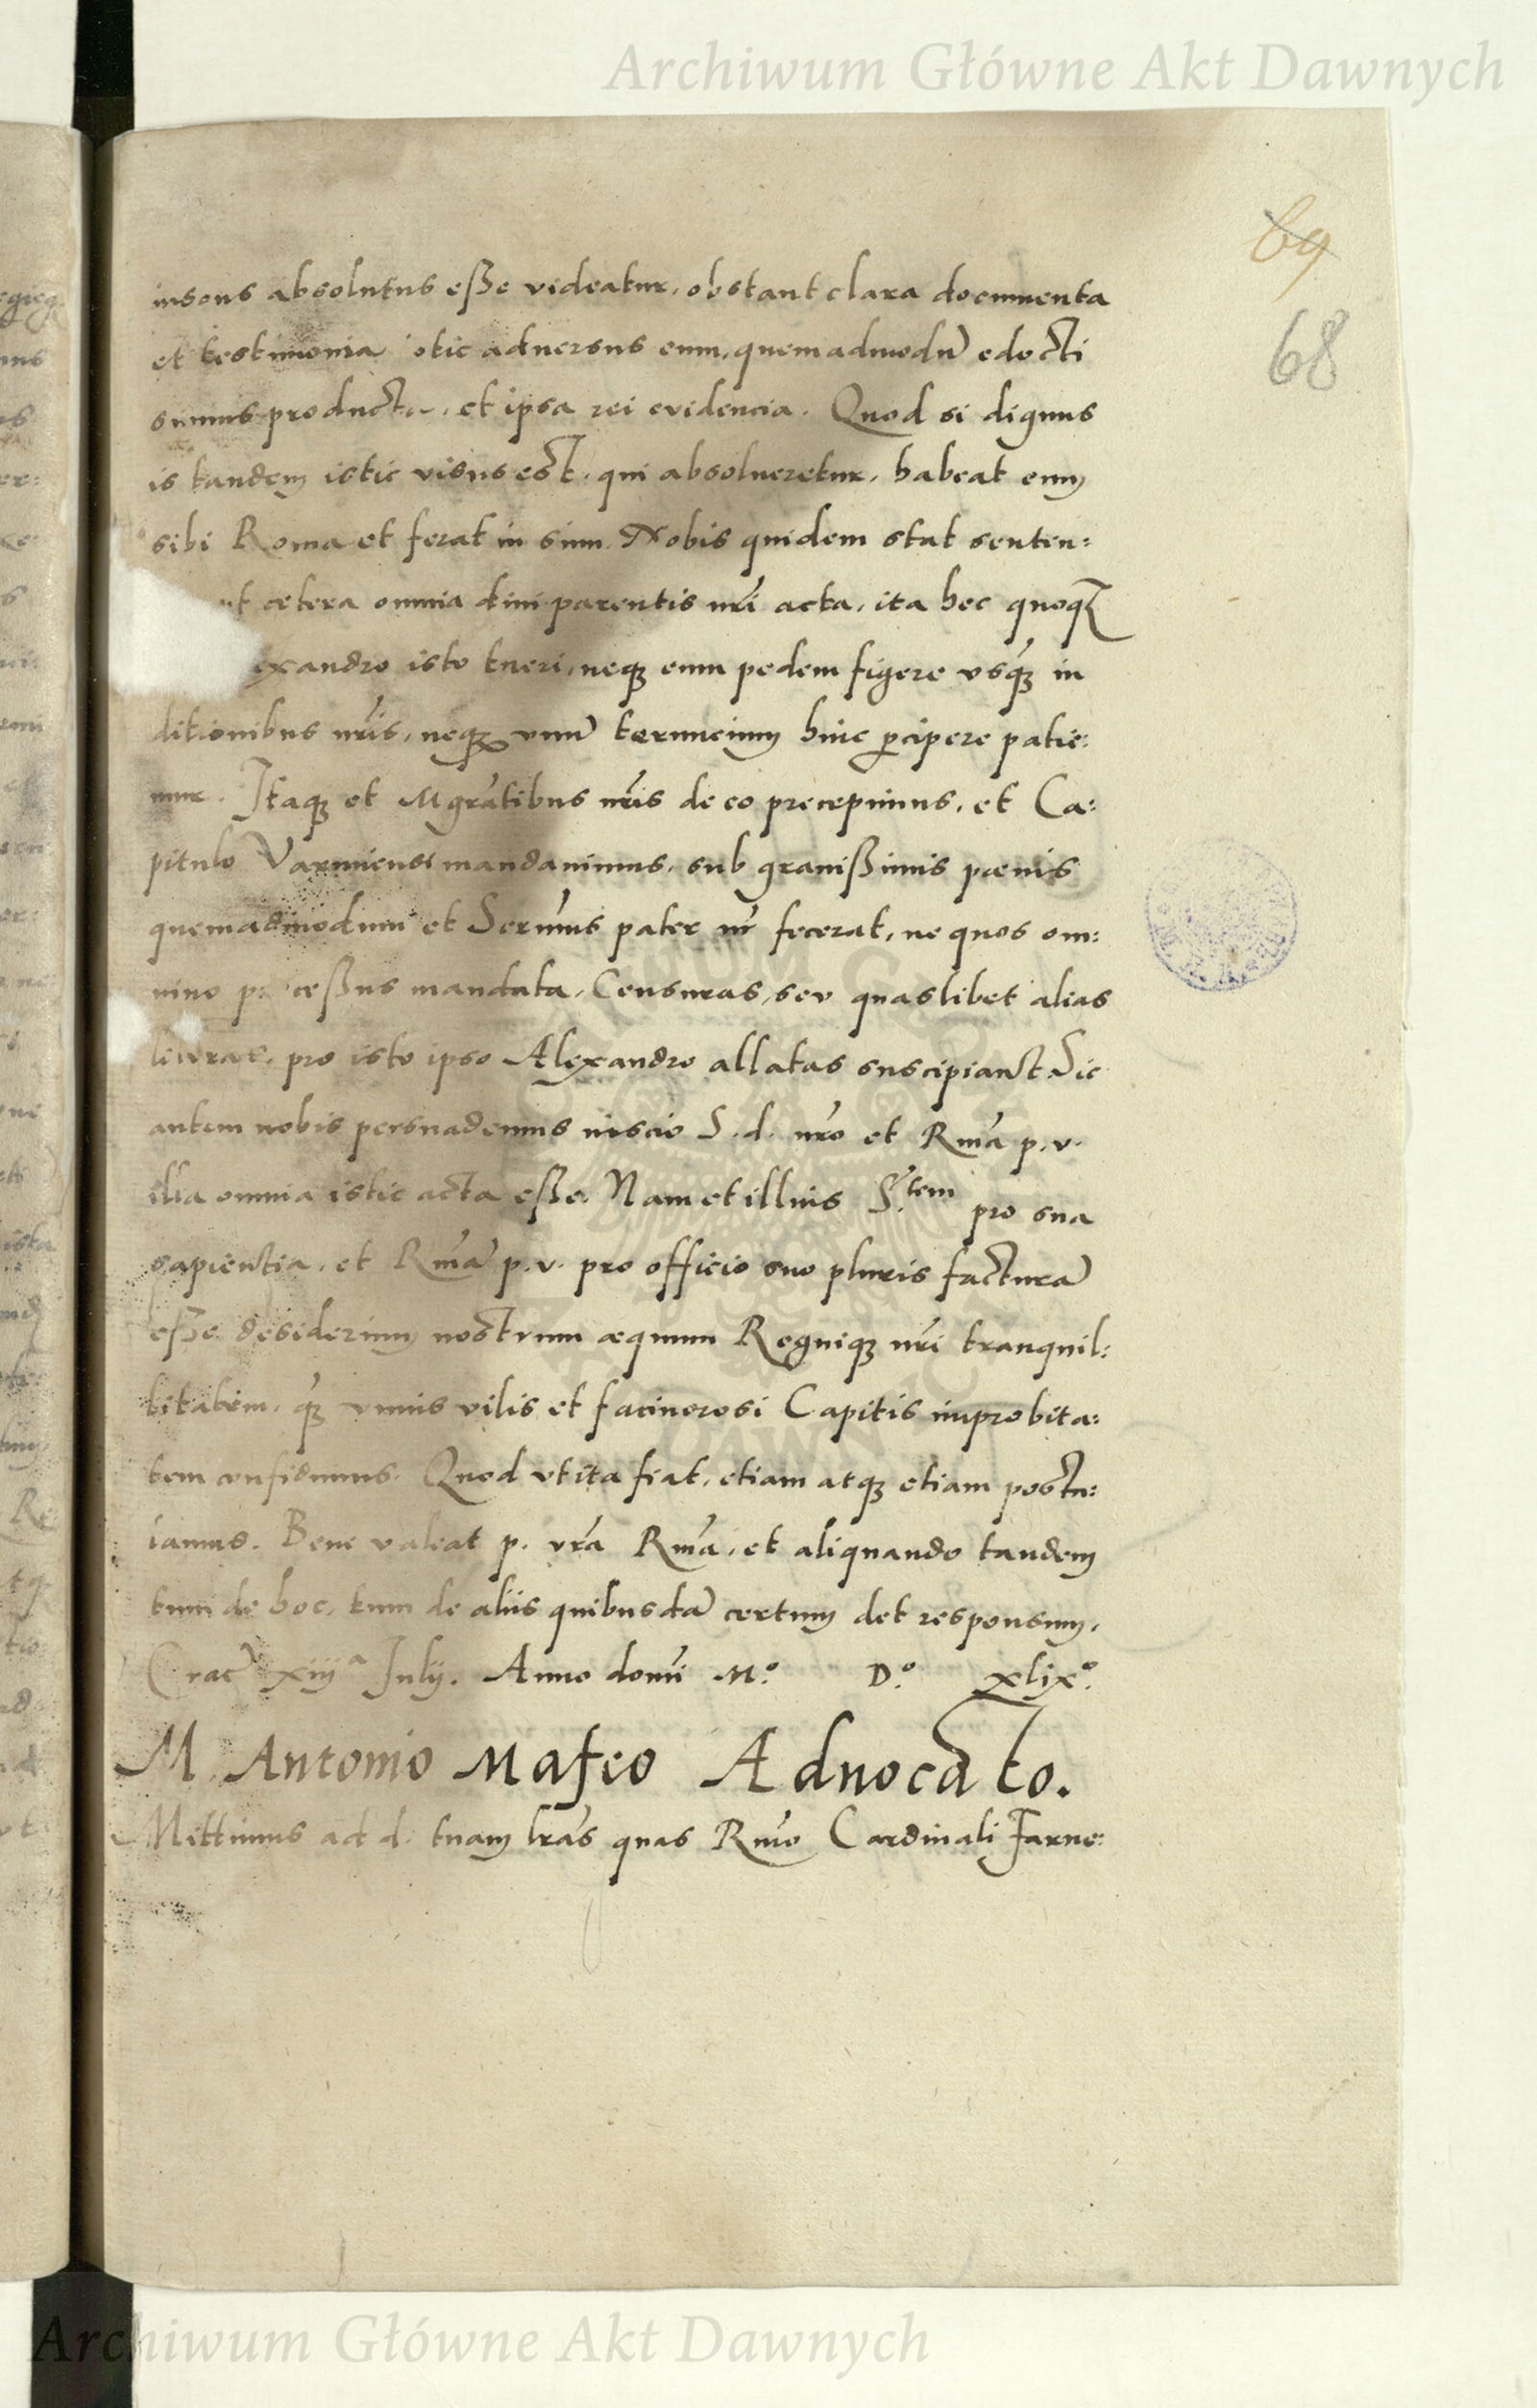 Archiwum Główne Akt Dawnych
69
68
insons absolutus eße videatur, obstant clara documenta
et testimonia istic aduersus eum, quemadmodū edocti
sumus producta, et ipsa rei evidencia. Quod si dignus
is tandem istic visus est, qui absolueretur, habeat eum
sibi Roma et ferat in sinu. Nobis quidem stat senten:
ut cetera omnia diui parentis nr̄i acta, ita hec quoqȝ
exandro isto tueri, neqȝ eum pedem figere vsq̄ȝ in
ditionibus nr̄is, neqȝ vnū teruncium hinc ꝑcipere patie:
mur. Itaqȝ et Mgr̄atibus nr̄is de eo precepimus, et Ca:
pitulo Varmiensi mandauimus, sub grauißimis pœnis
quemadmodum et Serm̄us pater nr̄ fecerat, ne quos om:
nino proceßus mandata, Censuras, seu quaslibet alias
literas, pro isto ipso Alexandro allatas suscipiant. Sic
autem nobis persuademus inscio S. d. nr̄o et Rm̄a p. v.
illa omnia istic acta eße. Nam et illius S.tem pro sua
sapientia, et Rm̄ā p. v. pro officio suo pluris facturā
eße desiderium nostrum æquum Regniqȝ nr̄i tranquil:
litatem, q̄ȝ vnius vilis et facinorosi Capitis improbita:
tem confidimus. Quod vt ita fiat, etiam atqȝ etiam postu:
lamus. Bene valeat p. vr̄a Rm̄a, et aliquando tandem
tum de hoc, tum de aliis quibusdā certum det responsum.
Crac̄ xiijᵃ Julij. Anno domī M.º D.º xlixº.
M. Antonio Mafeo Aduocato.
Mittimus ad d. tuam lr̄as quas Rm̄o Cardinali Farne:
Archiwum Główne Akt Dawnych